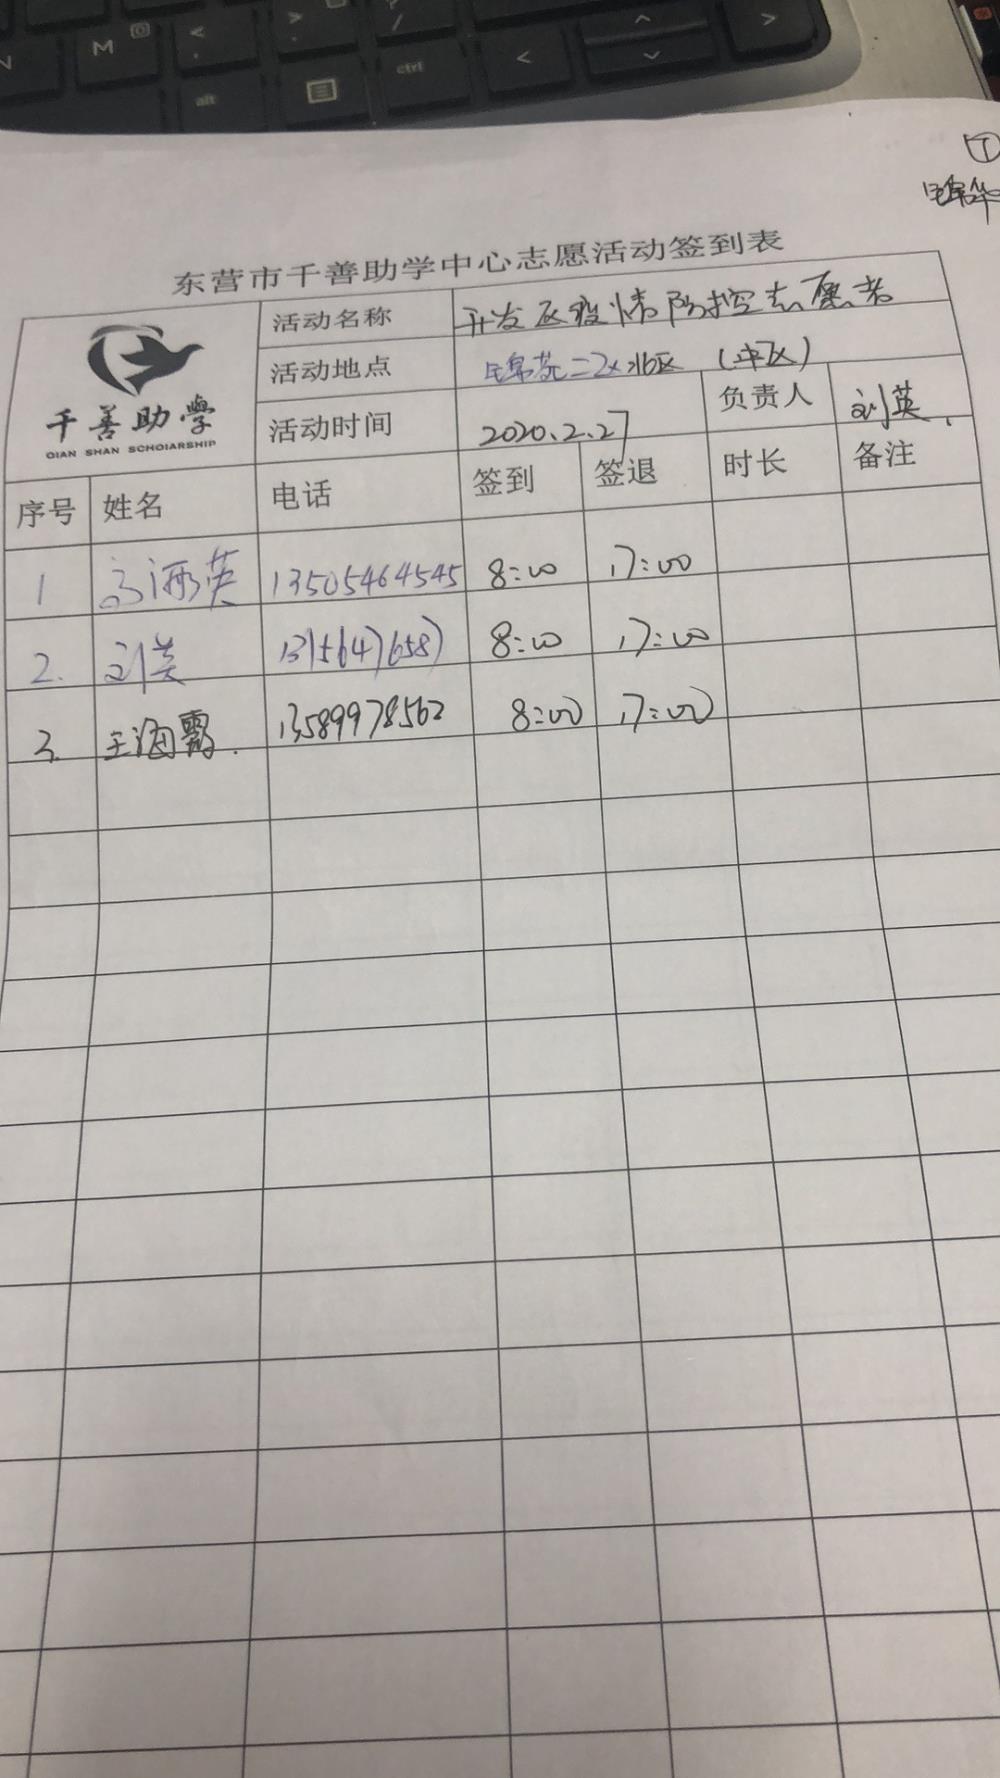 M
alt
ctrl
①
东营市千善助学中心志愿活动签到表
千善助學
QIAN SHAN SCHOIARSHIP
活动名称 开发区疫情防控志愿者
活动地点 锦苑二区北区
活动时间 2020.2.27 负责人 刘英
序号 姓名 电话 签到 签退 时长 备注
1 高洒英 13505464545 8:00 17:00
2. 刘英 13156476587 8:00 17:00
3. 王海霞. 13589978562 8:00 17:00